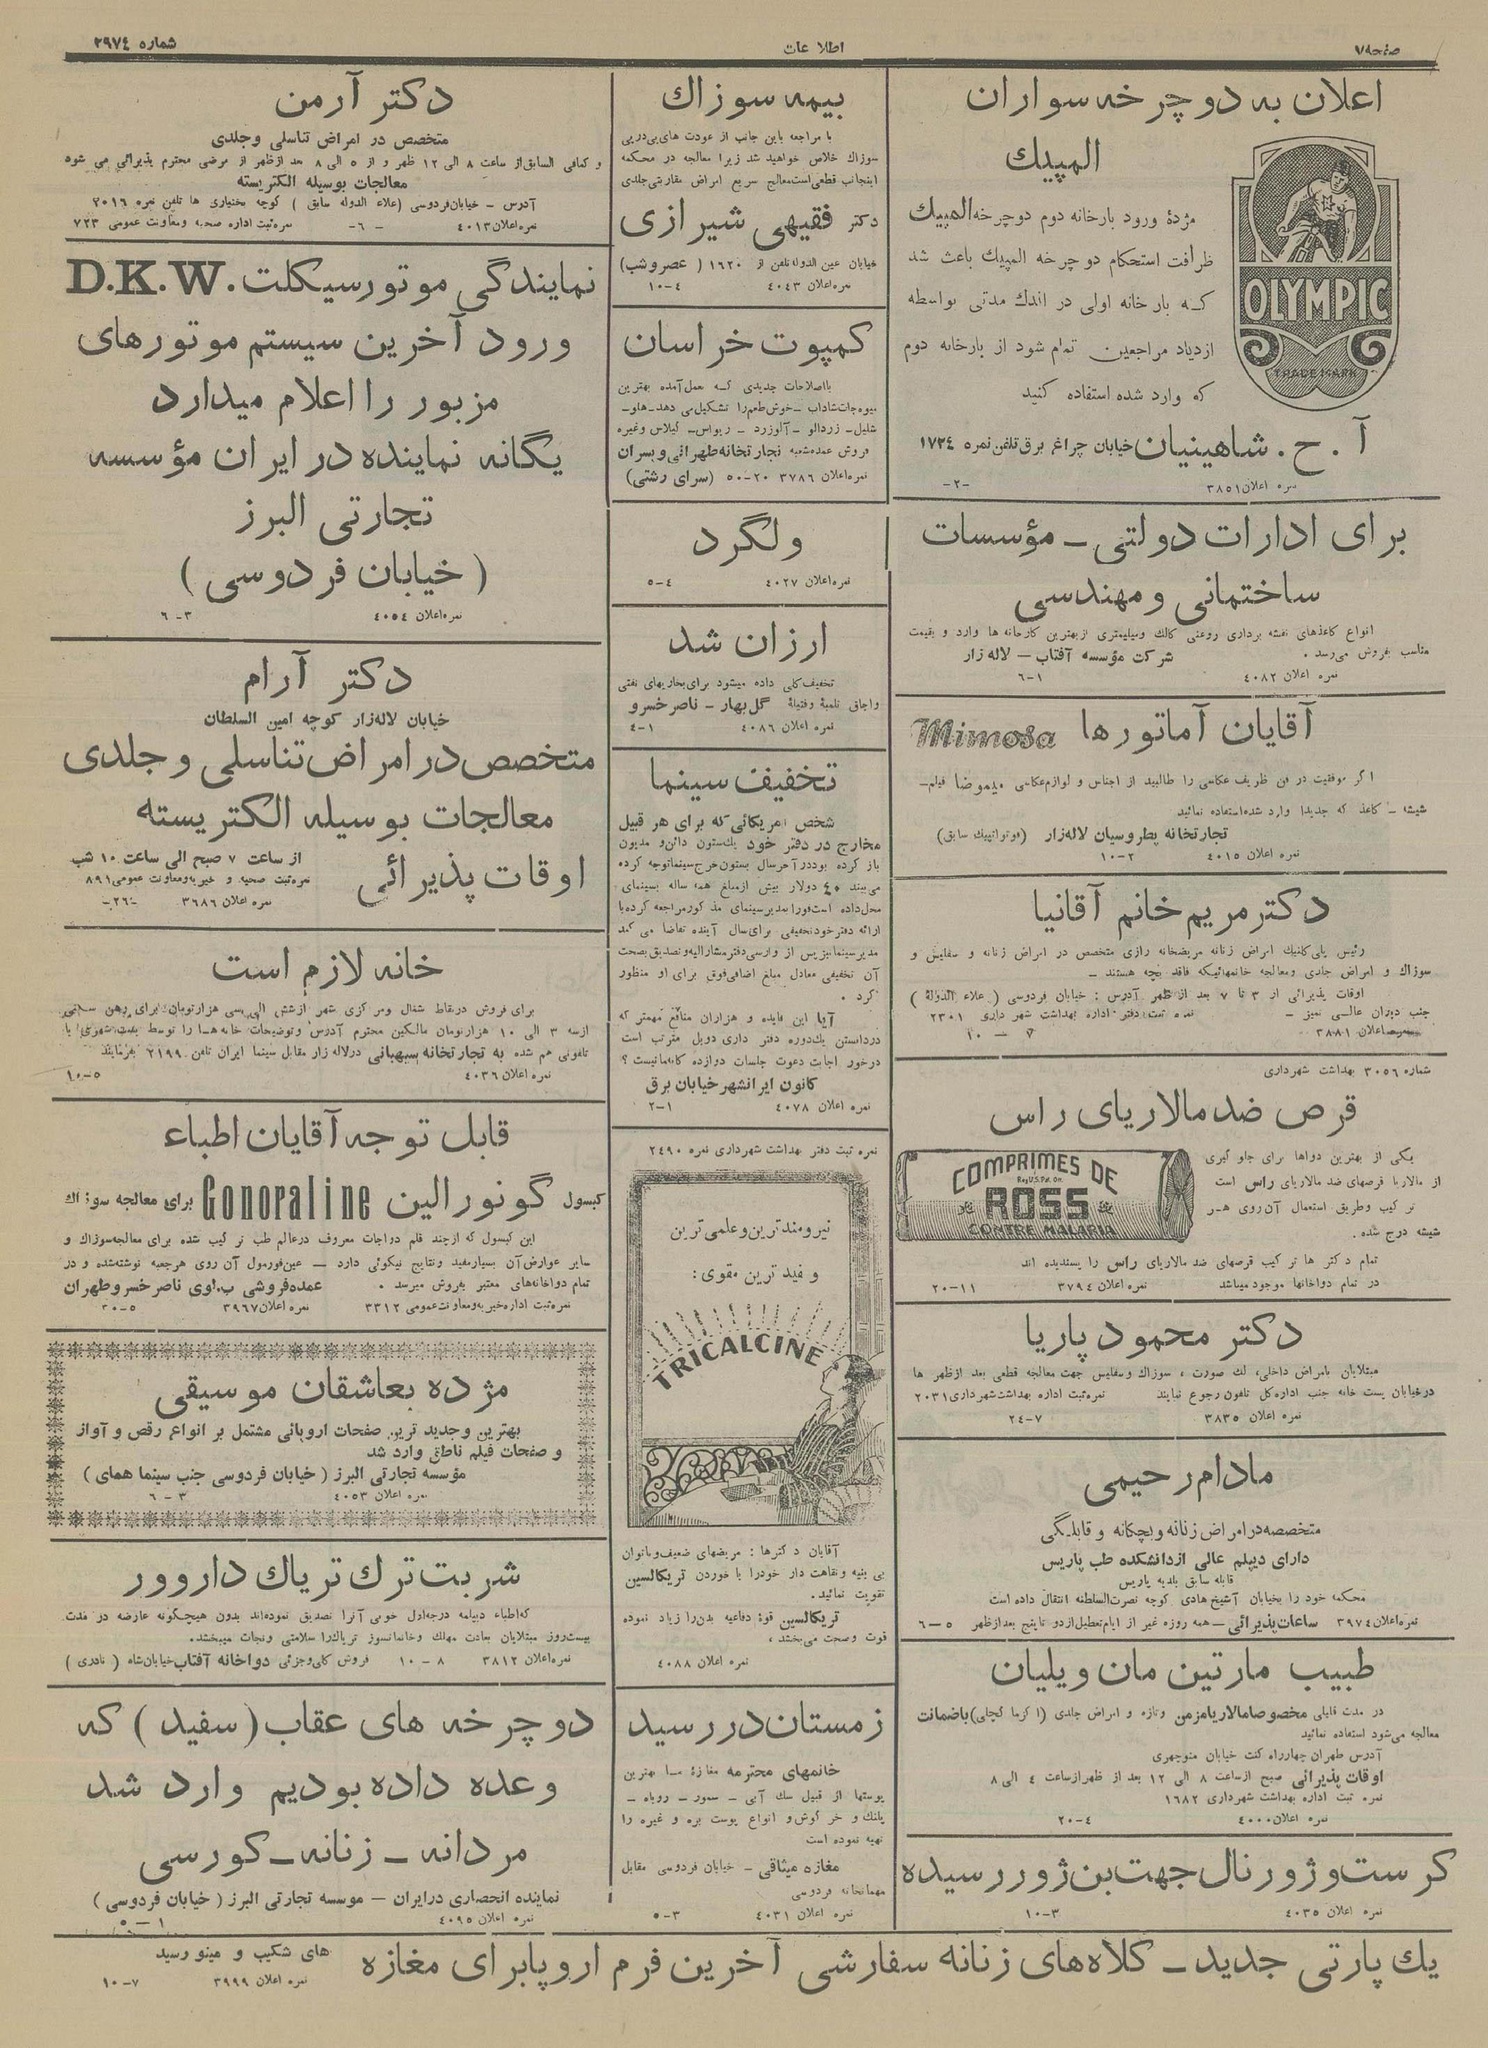 صفحه ۷
اطلاعات
شماره ۲۹۷٤
اعلان به دوچرخه سواران
المپیك
OLYMPIC
TRADE MARK
مژدهٔ ورود بارخانه دوم دوچرخه المپیك
ظرافت استحکام دوچرخه المپیك باعث شد
که بارخانه اولی در اندك مدتی بواسطه
ازدیاد مراجعین تمام شود از بارخانه دوم
که وارد شده استفاده کنید
آ . ح . شاهینیان خیابان چراغ برق تلفن نمره ۱۷۲٤
نمره اعلان ۳۸٥۱ -۲-
برای ادارات دولتی ـ مؤسسات
ساختمانی و مهندسی
انواع کاغذهای نقشه برداری روغنی کالك ومیلیمتری از بهترین کارخانه ها وارد و بقیمت
مناسب بفروش میرسد . شرکت مؤسسه آفتاب — لاله زار
نمره اعلان ٤۰۸۲ ۱-٦
آقایان آماتورها Mimosa
اگر موفقیت در فن ظریف عکاسی را طالبید از اجناس و لوازم عکاسی میموضا فیلم—
شیشه ـ کاغذ که جدیدا وارد شده استفاده نمائید
تجارتخانه پطروسیان لاله‌زار (فوتواتیپیك سابق)
نمره اعلان ٤۰۱٥ ۲-۱۰
دکتر مریم خانم آقانیا
رئیس پلی‌کلنیك امراض زنانه مریضخانه رازی متخصص در امراض زنانه و سفلیس و
سوزاك و امراض جلدی ومعالجه خانمهائیکه فاقد بچه هستند —
اوقات پذیرائی از ۳ تا ۷ بعد از ظهر آدرس : خیابان فردوسی ( علاء الدولة )
جنب دبیران عالی تمیز — نمره ثبت دفتر اداره بهداشت شهرداری ۲۳۰۱
نمره اعلان ۳۸۸۱ ۷ — ۱۰
شماره ۳۰٥٦ بهداشت شهرداری
قرص ضد مالاریای راس
COMPRIMES DE
Reg U.S. Pat. On.
ROSS
CONTRE MALARIA
یکی از بهترین دواها برای جلوگیری
از مالاریا قرصهای ضد مالاریای راس است
ترکیب وطریق استعمال آن روی هر
شیشه درج شده .
تمام دکترها ترکیب قرصهای ضد مالاریای راس را پسندیده اند
در تمام دواخانها موجود میباشد نمره اعلان ۳۷۹٤ ۱۱-۲۰
دکتر محمود پاریا
مبتلایان بامراض داخلی، لك صورت ، سوزاك وسفلیس جهت معالجه قطعی بعد ازظهر ها
درخیابان پست خانه جنب اداره کل تلفون رجوع نمایند نمره ثبت اداره بهداشت شهرداری ۲۰۳۱
نمره اعلان ۳۸۳٥ ۷-۲٤
مادام رحیمی
متخصصه در امراض زنانه و بچکانه و قابلگی
دارای دیپلم عالی ازدانشکده طب پاریس
قابله سابق بلدیه پاریس
محکمه خود را بخیابان آشیخ هادی کوچه نصرت السلطنه انتقال داده است
نمره اعلان ۳۹۷٤ ساعات پذیرائی — همه روزه غیر از ایام تعطیل ازدو تا پنج بعد ازظهر ٥-٦
طبیب مارتین مان ویلیان
در مدت قلیلی مخصوصا مالاریا مزمن وتازه و امراض جلدی (اگزما کچلی) باضمانت
معالجه می‌شود استفاده نمائید
آدرس طهران چهارراه کنت خیابان منوچهری
اوقات پذیرائی صبح ازساعت ۸ الی ۱۲ بعد از ظهر ازساعت ٤ الی ۸
نمره ثبت اداره بهداشت شهرداری ۱٦۸۲
نمره اعلان ٤۰۰۰ ٤-۲۰
کرست و ژورنال جهت بن ژور رسیده
نمره اعلان ٤۰۳٥ ۳-۱۰
بیمه سوزاك
با مراجعه باین جانب از عودت های پی‌درپی
سوزاك خلاص خواهید شد زیرا معالجه در محکمه
اینجانب قطعی است معالج سریع امراض مقاربتی جلدی
دکتر فقیهی شیرازی
خیابان عین الدوله تلفن از ۱٦۲۰ ( عصر وشب)
نمره اعلان ٤۰٤۳ ٤-۱۰
کمپوت خراسان
بااصلاحات جدیدی که بعمل آمده بهترین
میوه‌جات شاداب – خوش طعم را تشکیل می دهد-هلو-
شلیل- زردالو – آلوزرد – ریواس- گیلاس وغیره
فروش عمده شعبه تجارتخانه طهرانی و پسران
نمره اعلان ۳۷۸٦ ۲۰-٥۰ (سرای رشتی)
ولگرد
نمره اعلان ٤۰۲۷ ٤-٥
ارزان شد
تخفیف کلی داده میشود برای بخاریهای نفتی
واجاق تلمبهٔ وفتیلهٔ گل بهار - ناصر خسرو
نمره اعلان ٤۰۸٦ ۱-٤
تخفیف سینما
شخص امریکائی که برای هر قبیل
مخارج در دفتر خود یك ستون دائن و مدیون
باز کرده بود در آخر سال بستون خرج سینما توجه کرده
می‌بیند ٤۰ دلار بیش از مبلغ همه ساله بسینمای
محل داده است فورا بمدیر سینمای مذکور مراجعه کرده با
ارائه دفتر خود تخفیفی برای سال آینده تقاضا می کند
مدیر سینما پس از وارسی دفتر مشارالیه و تصدیق بصحت
آن تخفیفی معادل مبلغ اضافی فوق برای او منظور
کرد .
آیا این فایده و هزاران منافع مهمتر که
در دانستن یك دوره دفتر داری دوبل مترتب است
در خور اجابت دعوت جلسات دوازده گانه ما نیست ؟
کانون ایرانشهر خیابان برق
نمره اعلان ٤۰۷۸ ۱-۲
نمره ثبت دفتر بهداشت شهرداری نمره ۲٤۹۰
نیرومندترین و علمی ترین
و مفید ترین مقوی :
TRICALCINE
آقایان دکترها : مریضهای ضعیف وبانوان
بی بنیه و نقاهت دار خودرا با خوردن تریکالسین
تقویت نمائید.
تریکالسین قوهٔ دفاعیه بدن را زیاد نموده
قوت وصحت می‌بخشد ،
نمره اعلان ٤۰۸۸
زمستان در رسید
خانمهای محترمه مغازهٔ ما بهترین
پوستها از قبیل سك آبی - سمور - روباه -
پلنك و خرگوش و انواع پوست بره و غیره را
تهیه نموده است
مغازه میثاقی - خیابان فردوسی مقابل
مهمانخانه فردوسی
نمره اعلان ٤۰۳۱ ۳-٥
دکتر آرمن
متخصص در امراض تناسلی و جلدی
و کمافی السابق از ساعت ۸ الی ۱۲ ظهر و از ٥ الی ۸ بعد ازظهر از مرضی محترم پذیرائی می شود
معالجات بوسیله الکتریسته
آدرس - خیابان فردوسی (علاء الدوله سابق ) کوچه بختیاری ها تلفن نمره ۷۰۱٦
نمره اعلان ٤۰۱۳ -٦- نمره ثبت اداره صحیه ومعاونت عمومی ۷۲۳
نمایندگی موتورسیکلت D.K.W.
ورود آخرین سیستم موتورهای
مزبور را اعلام میدارد
یگانه نماینده در ایران مؤسسه
تجارتی البرز
( خیابان فردوسی )
نمره اعلان ٤۰٥٤ ۳-٦
دکتر آرام
خیابان لاله‌زار کوچه امین السلطان
متخصص در امراض تناسلی و جلدی
معالجات بوسیله الکتریسته
اوقات پذیرائی
از ساعت ۷ صبح الی ساعت ۱۰ شب
نمره ثبت صحیه و خیریه ومعاونت عمومی ۸۹۱
نمره اعلان ۳٦۸٦ -۲٦-
خانه لازم است
برای فروش درنقاط شمال ومرکزی شهر ازشش الی سی هزارتومان برای رهن
ازسه ۳ الی ۱۰ هزارتومان مالکین محترم آدرس وتوضیحات خانه هارا توسط پست شهری یا
تلفونی هم شده به تجارتخانه سپهبانی درلاله زار مقابل سینما ایران تلفن ۲۱۹۹ بفرمایند
نمره اعلان ٤۰۳٦ ٥-۱۰
قابل توجه آقایان اطباء
کپسول گونورالین Gonoraline برای معالجه سوزاك
این کپسول که ازچند قلم دواجات معروف درعالم طب ترکیب شده برای معالجه سوزاك و
سایر عوارض آن بسیار مفید و نتایج نیکوئی دارد — عین فورمول آن روی هرجعبه نوشته شده و در
تمام دواخانه‌های معتبر بفروش میرسد . عمده فروشی ناصر خسرو طهران
نمره ثبت اداره خیریه ومعاونت عمومی ۳۳۱۲ نمره اعلان ۳۹٦۷ ٥-۳۰
مژده بعاشقان موسیقی
بهترین و جدید ترین صفحات اروپائی مشتمل بر انواع رقص و آواز
و صفحات فیلم ناطق وارد شد
مؤسسه تجارتی البرز ( خیابان فردوسی جنب سینما همای )
نمره اعلان ٤۰٥۳ ۳ - ٦
شربت ترك تریاك داروور
که‌اطباء دیپلمه درجه‌اول خوبی آنرا تصدیق نموده‌اند بدون هیچگونه عارضه در مدت
بیست‌روز مبتلایان بعادت مهلك وخانمانسوز تریاك را سلامتی ونجات میبخشد.
نمره اعلان ۳۸۱۲ ۸ - ۱۰ فروش کلی وجزئی دواخانه آفتاب خیابان شاه ( نادری )
دوچرخه های عقاب ( سفید ) که
وعده داده بودیم وارد شد
مردانه ـ زنانه ـ کورسی
نماینده انحصاری درایران — موسسه تجارتی البرز ( خیابان فردوسی )
نمره اعلان ٤۰۹٥ ۱—٥
یك پارتی جدید ـ کلاه‌های زنانه سفارشی آخرین فرم اروپا برای مغازه
های شکیب و مینو رسید
نمره اعلان ۳۹۹۹ ۷-۱۰